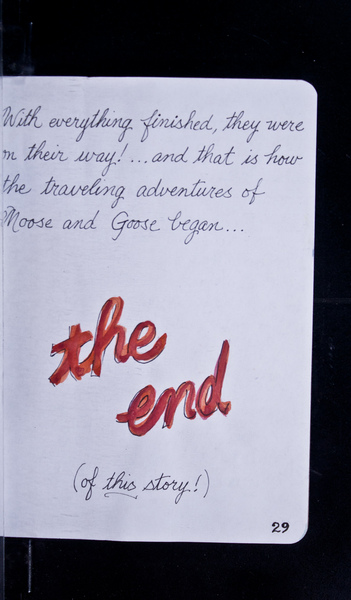 With everything finished, they were
on their way! ...and that is how
the traveling adventures of
Moose and Goose began...
the
end
(of this story!)
29